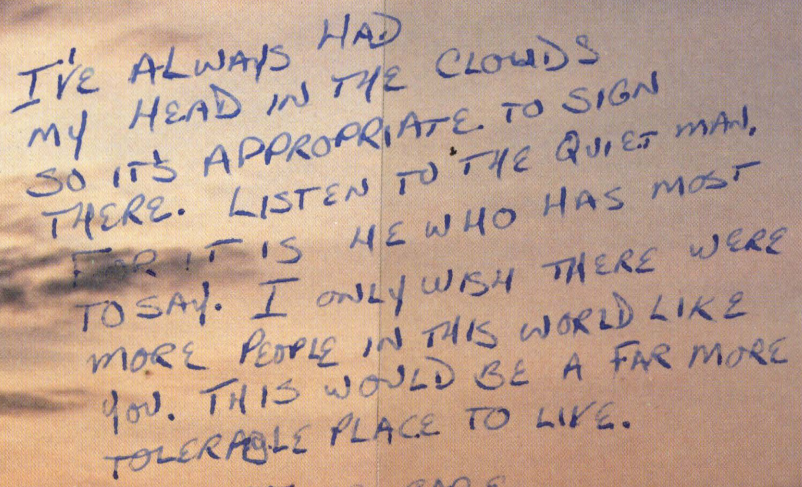 I'VE ALWAYS HAD
MY HEAD IN THE CLOUDS
SO IT'S APPROPRIATE TO SIGN
THERE. LISTEN TO THE QUIET MAN,
FOR IT IS HE WHO HAS MOST
TO SAY. I ONLY WISH THERE WERE
MORE PEOPLE IN THIS WORLD LIKE
YOU. THIS WOULD BE A FAR MORE
TOLERABLE PLACE TO LIVE.